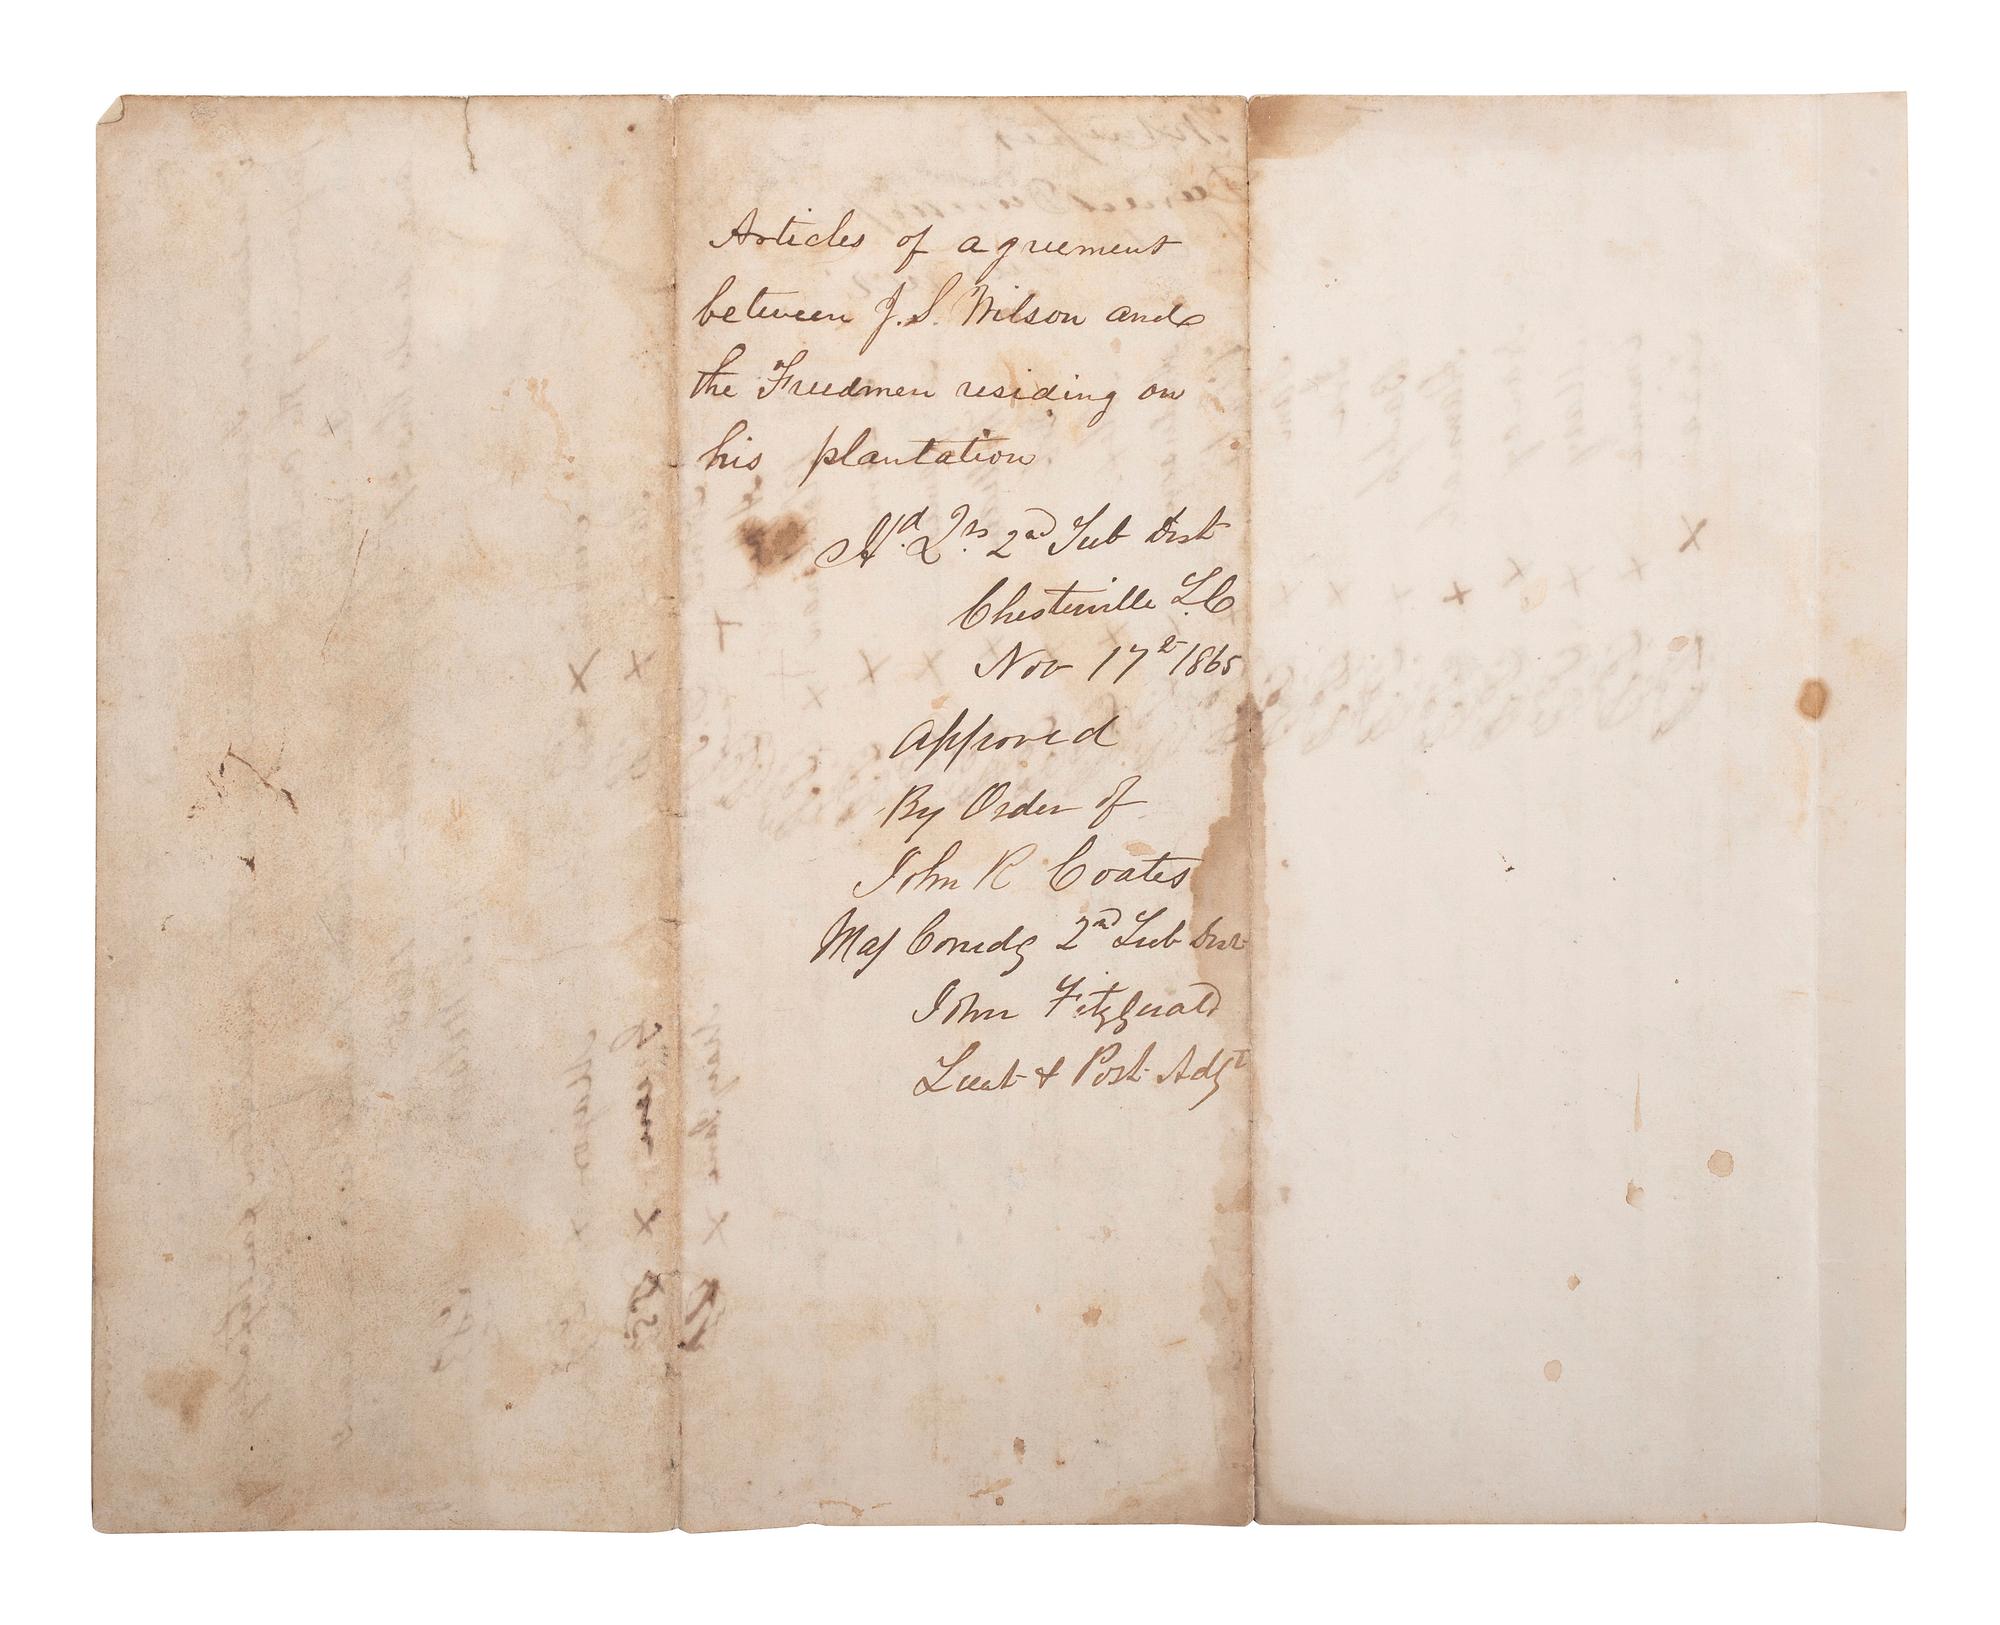 Articles of agreement
between J. S. Wilson and
the Freedmen residing on
his plantation
Hd. Qrs. 2nd Sub Dist
Chesterville S.C
Nov 17th 1865
Approved
By Order of
John R Coates
Maj Comdg 2nd Sub Dist
John Fitzgerald
Lieut & Post Adjt